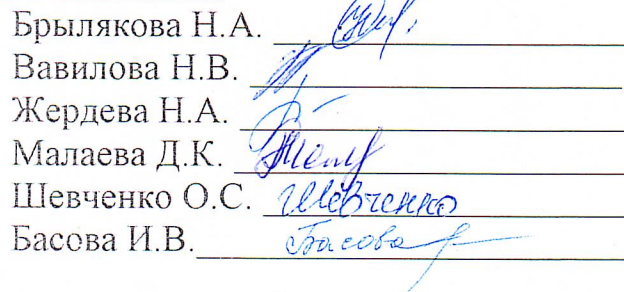 Брылякова Н.А.
Вавилова Н.В.
Жердева Н.А.
Малаева Д.К.
Шевченко О.С. Шевченко
Басова И.В. Басова